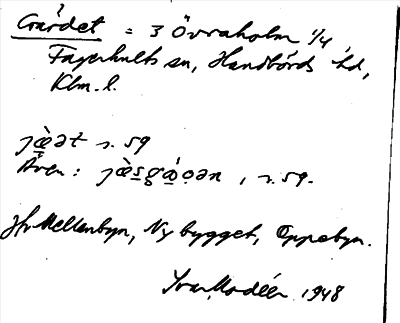 ?
Gärdet = 3 Övraholm 1/4,
Fagerhults sn, Handbörds hd,
Klm. l.
jæ̀ət s. 59
Även: , s. 59.
Mellanbyn, Nybygget, Oppebyn.
Ivar Modéer 1948